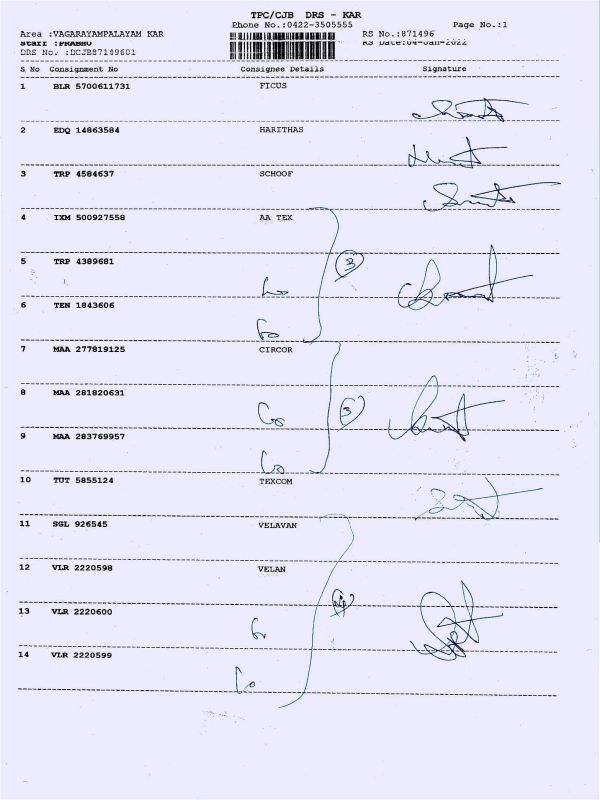 TPC/CJB DRS - KAR
Phone No.:0422-3505555 Page No.:1
Area :VAGARAYAMPALAYAM KAR RS No.:871496
Staff :PRABHU RS Date:04-Jan-2022
DRS No. :DCJB87149601
S No Consignment No Consignee Details Signature
1 BLR 5700611731 FICUS
2 EDQ 14863584 HARITHAS
3 TRP 4584637 SCHOOF
4 IXM 500927558 AA TEX
5 TRP 4389681
3
6 TEN 1843606
7 MAA 277819125 CIRCOR
8 MAA 281820631
3
9 MAA 283769957
10 TUT 5855124 TEXCOM
11 SGL 926545 VELAVAN
12 VLR 2220598 VELAN
13 VLR 2220600
14 VLR 2220599